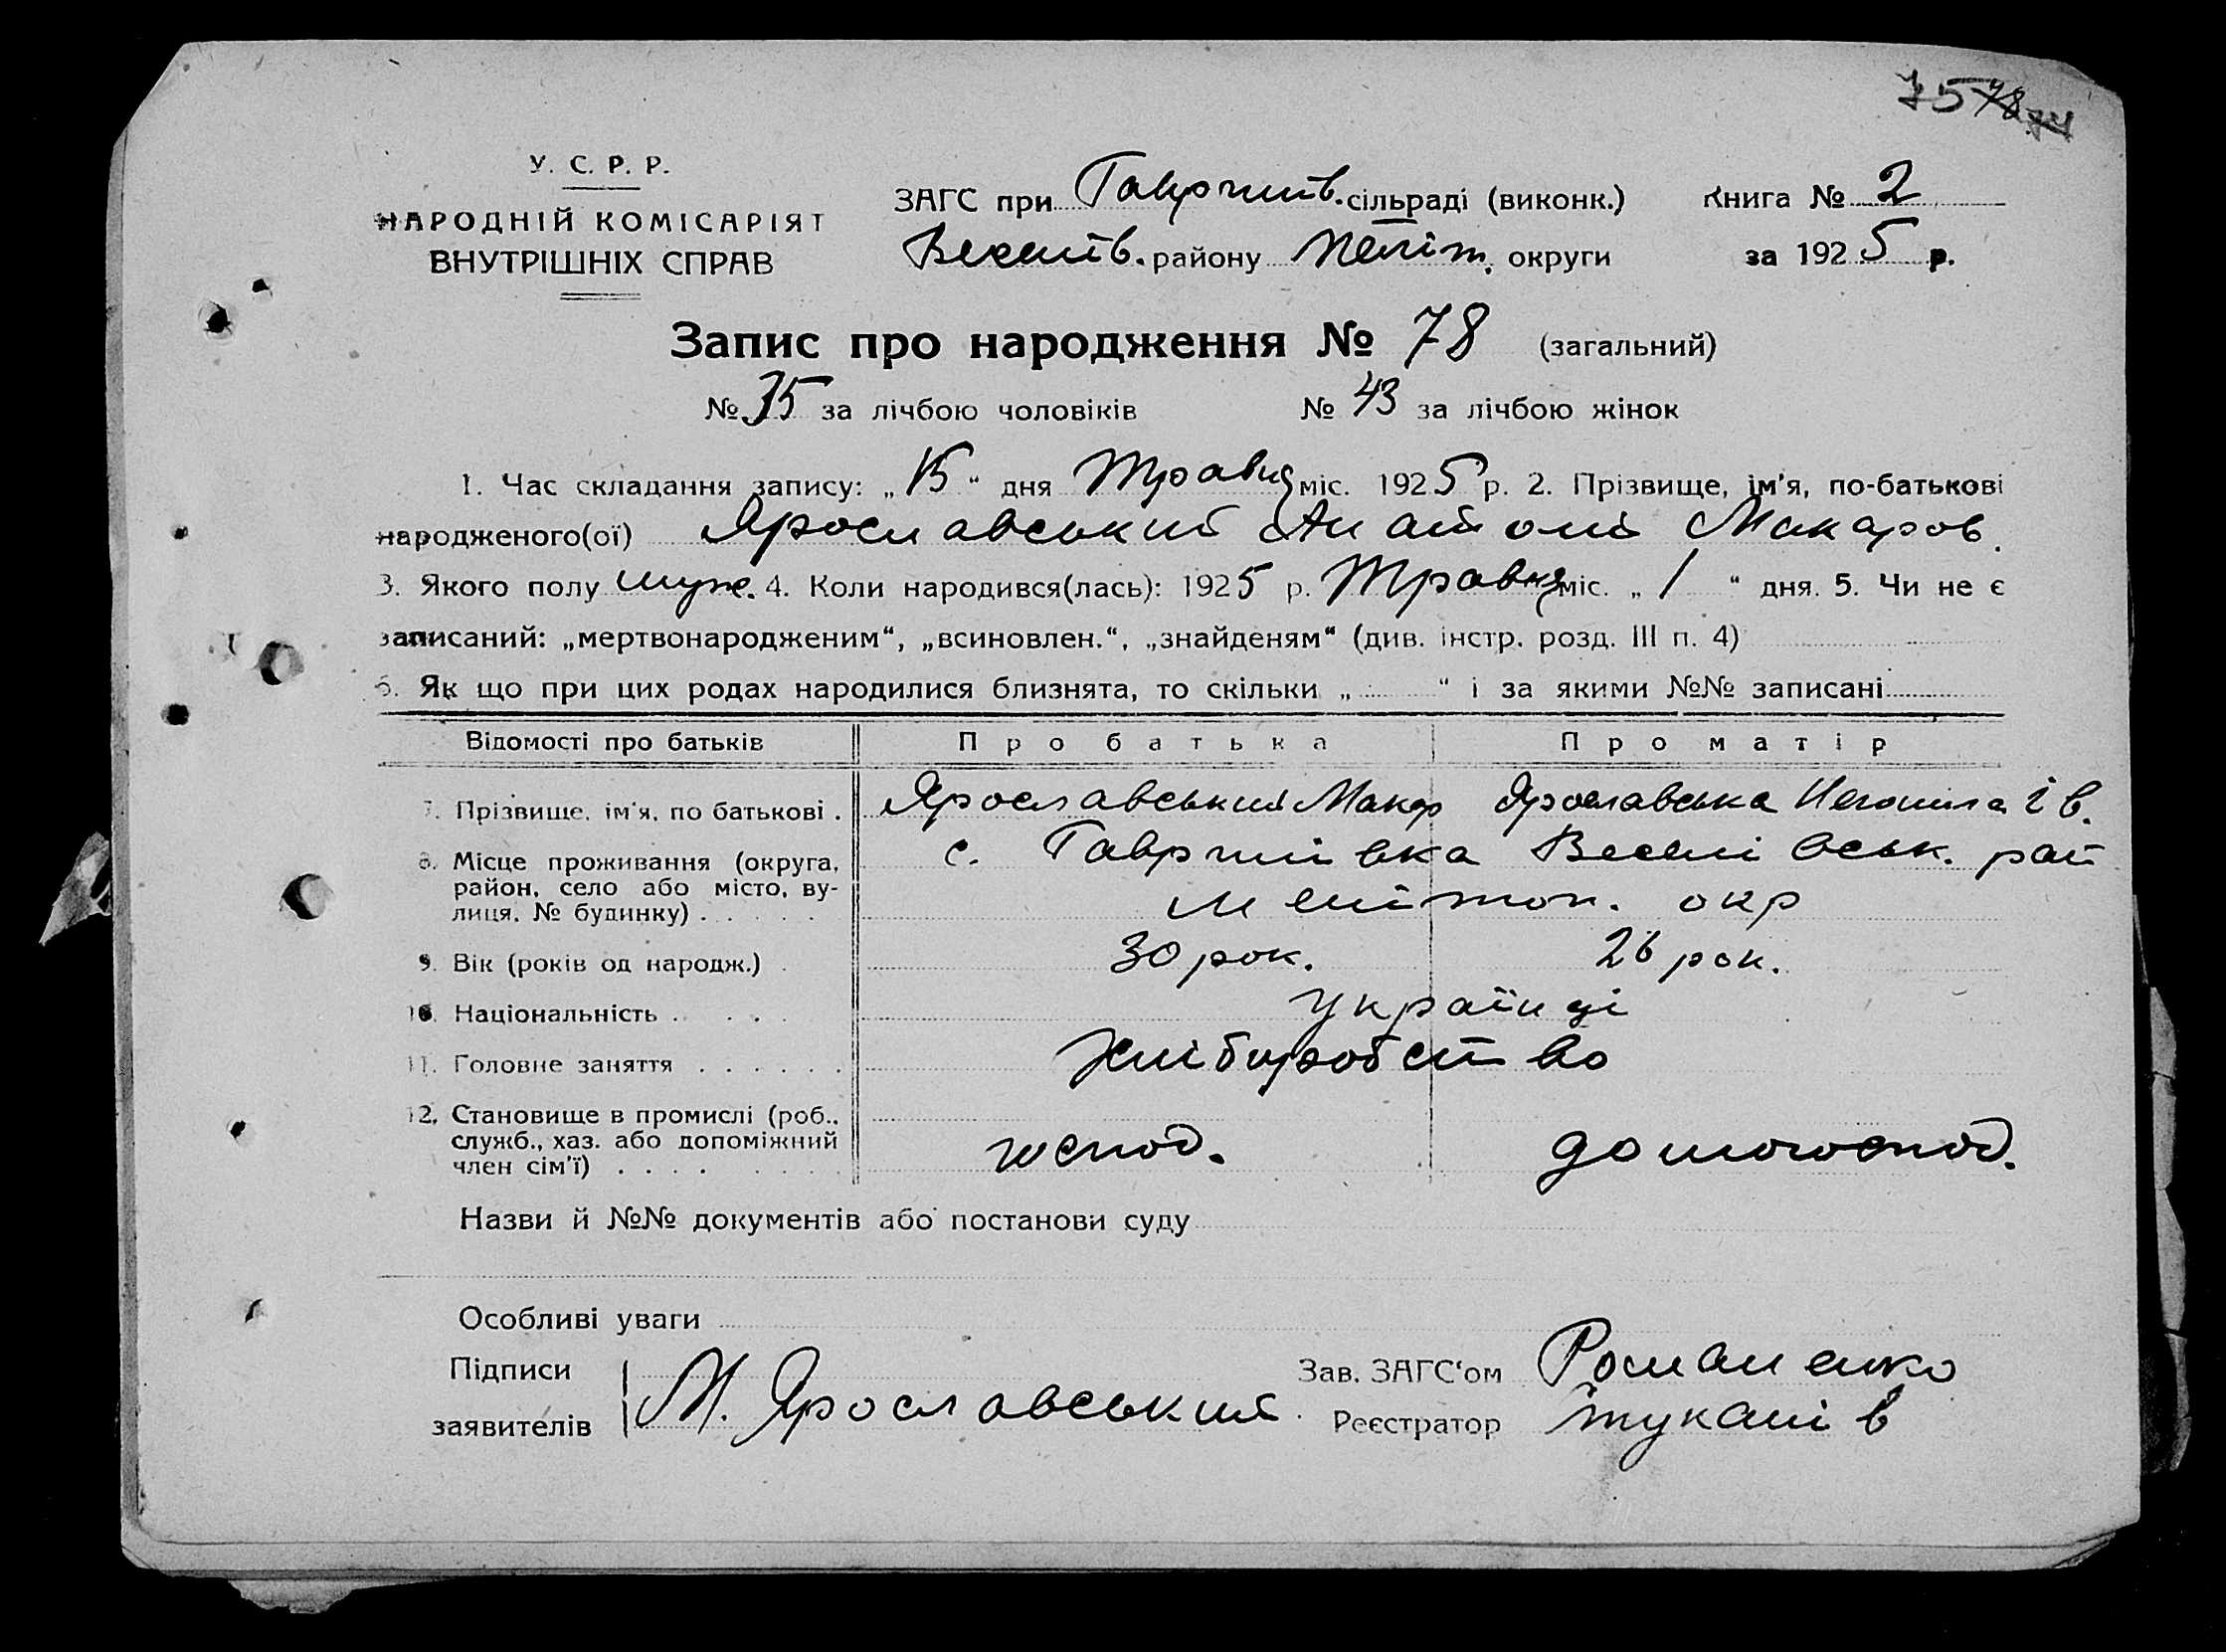 75 78 74
У. С. Р. Р.
НАРОДНІЙ КОМІСАРІЯТ
ВНУТРІШНІХ СПРАВ
ЗАГС при Гаврилів. сільраді (виконк.)
Веселів. району Меліт. округи
Книга № 2
за 1925 р.
Запис про народження № 78 (загальний)
№ 35 за лічбою чоловіків № 43 за лічбою жінок
1. Час складання запису: „15“ дня Травня міс. 1925 р. 2. Прізвище, ім'я, по-батькові
народженого(ої) Ярославський Анатолій Макаров.
3. Якого полу муже. 4. Коли народився(лась): 1925 р. Травня міс. „1“ дня. 5. Чи не є
записаний: „мертвонародженим“, „всиновлен.“, „знайденям“ (див. інстр. розд. III п. 4)
6. Як що при цих родах народилися близнята, то скільки „ “ і за якими №№ записані
Відомості про батьків Про батька Про матір
7. Прізвище, ім'я, по батькові . Ярославський Макар Ярославська Ів.
8. Місце проживання (округа, район, село або місто, ву-
лиця, № будинку) . . . . .
с. Гаврилівка Веселівськ. рай
Мелітоп. окр
9. Вік (років од народж.) . 30 рок. 26 рок.
10. Національність . . . . Українці
11. Головне заняття . . . . . . Хліборобство
12. Становище в промислі (роб., служб., хаз. або допоміжний
член сім'ї) . . . . . . . .
господ. домогоспод.
Назви й №№ документів або постанови суду
Особливі уваги
Підписи
заявителів М. Ярославський
Зав. ЗАГС'ом Романенко
Реєстратор Тукалів